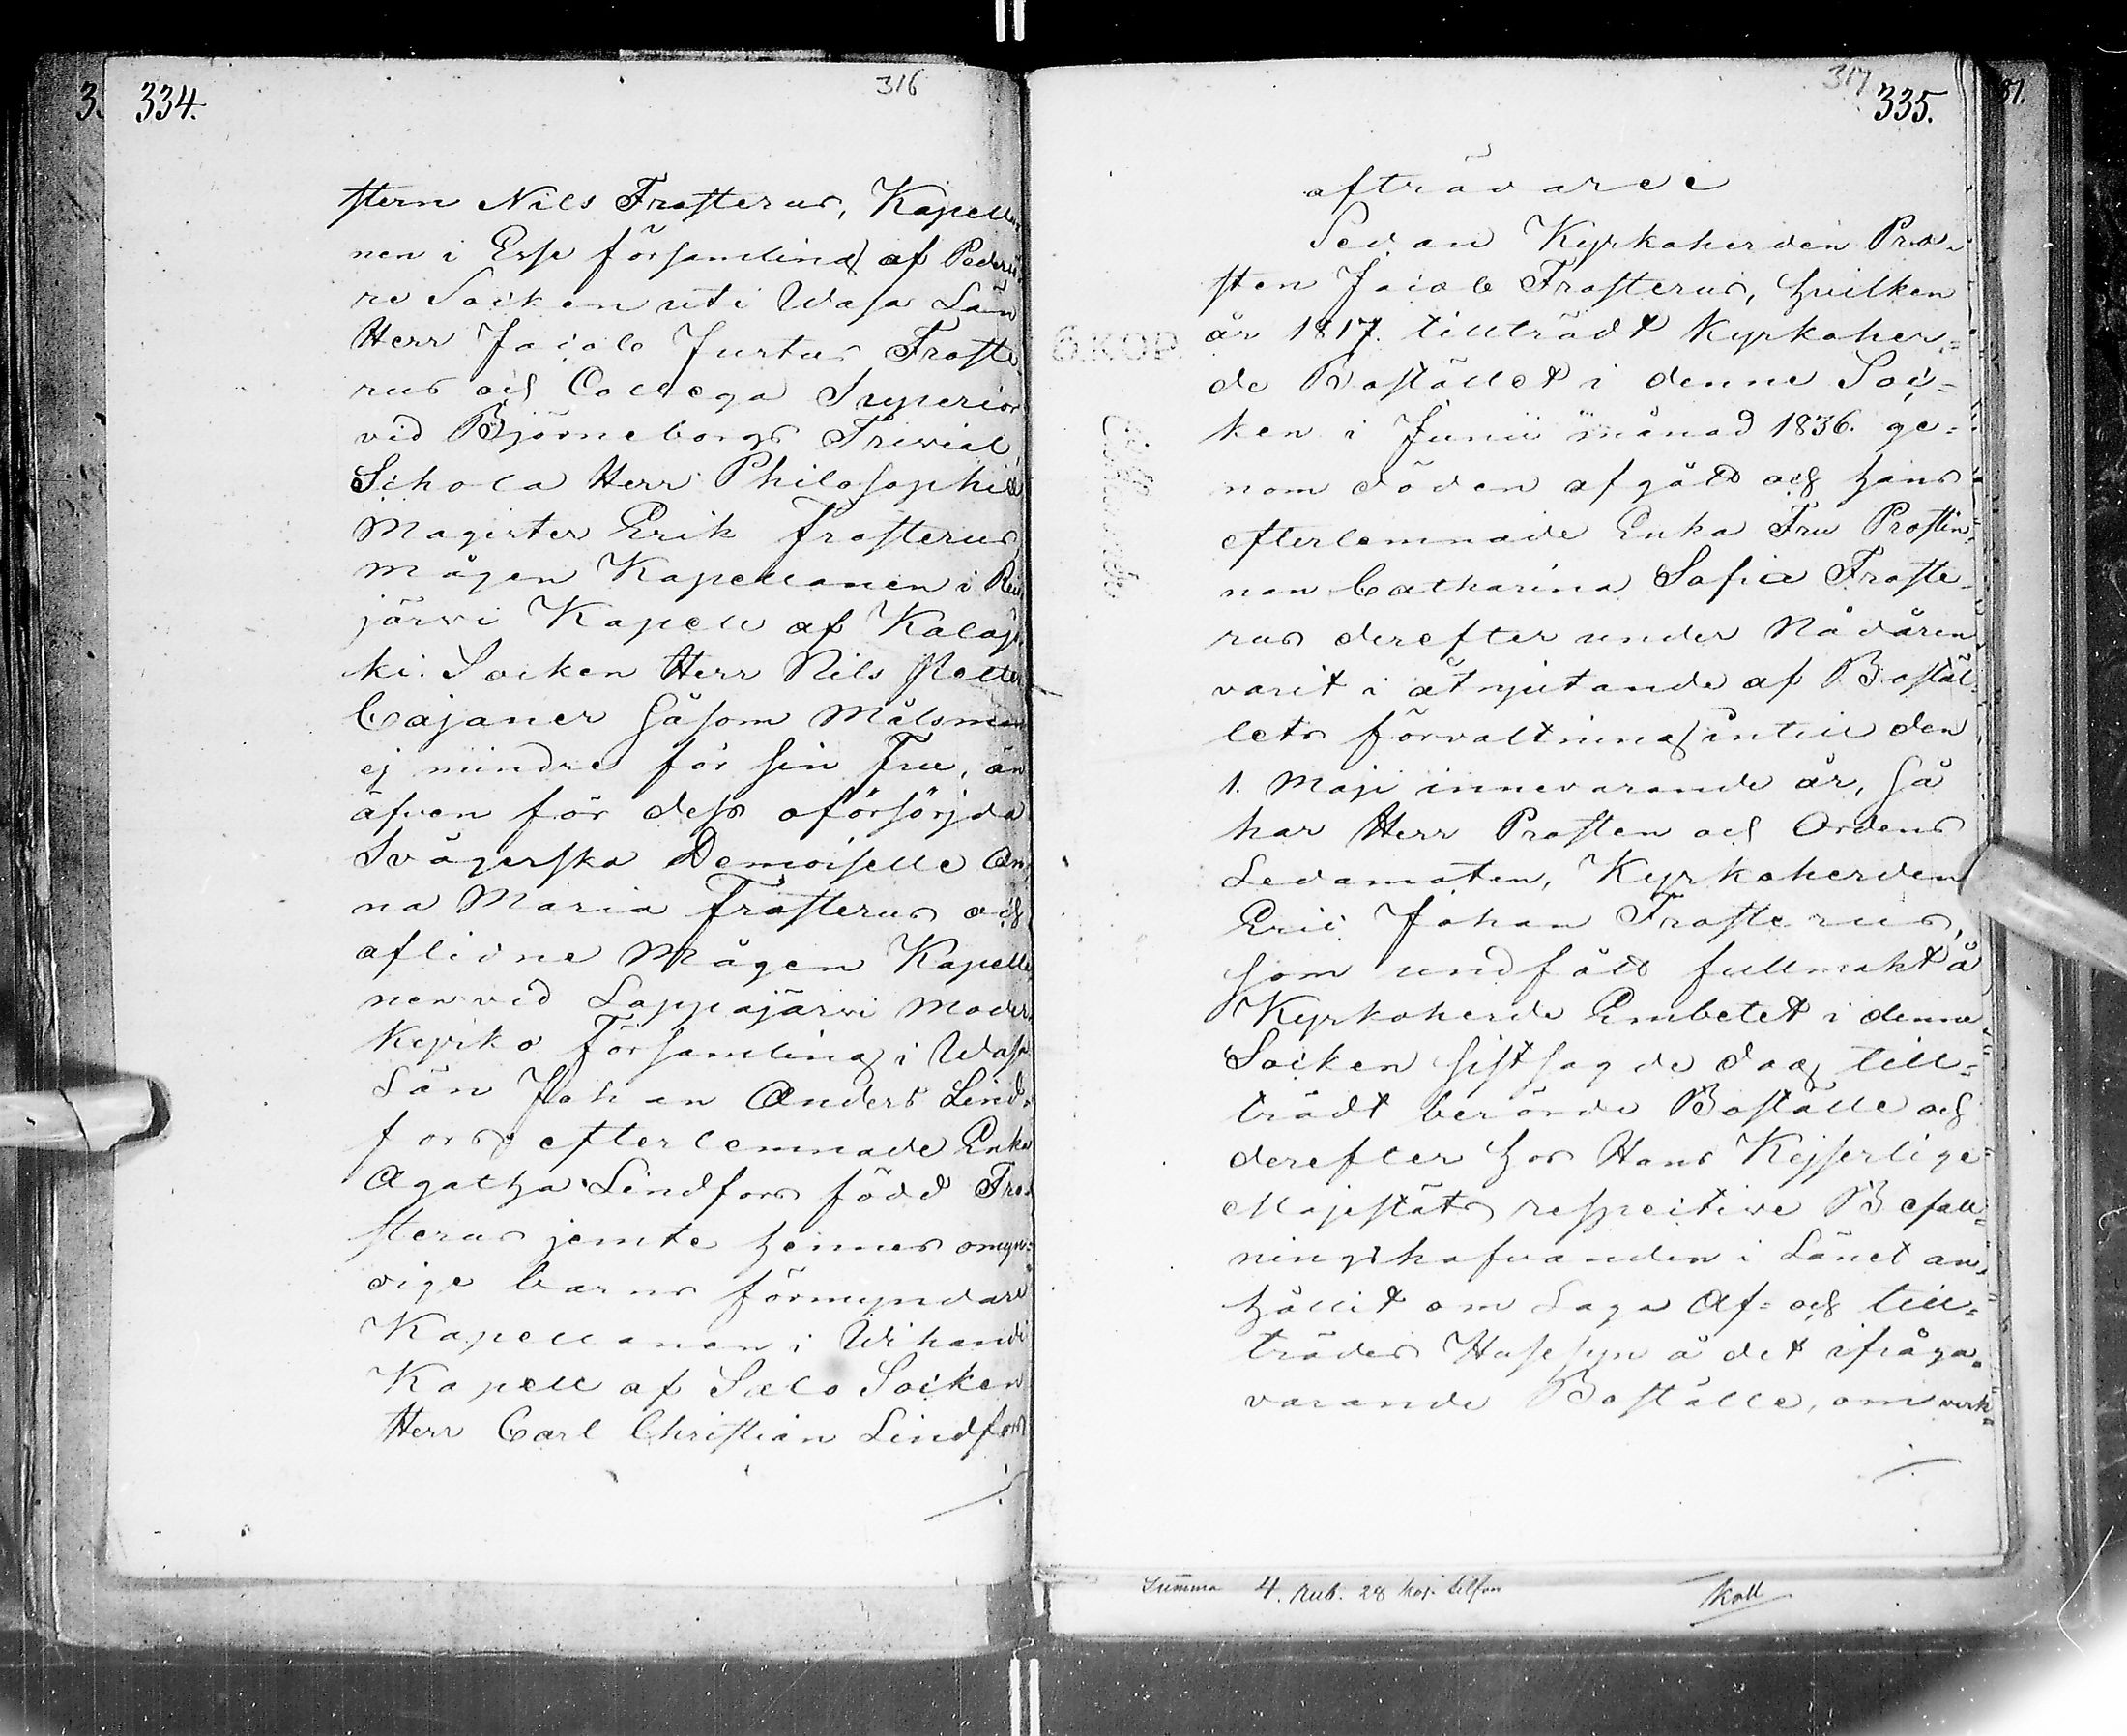 334.
316
sten Nils Frosterus, Kapella-
nen i Esse församling af Pedersö-
re Socken uti Wasa Län
Herr Jacob Justus Froste-
rus och Collega Superior
vid Björneborgs Trivial
Schola Herr Philosophiæ
Magister Erik Frosterus,
mågen Kapellanen i Rei-
järvi Kapell af Kalajo-
ki Socken Herr Nils
Cajaner såsom Målsman
ej mindre för sin Fru, än
äfven för dess oförsörjda
Svägerska Demoiselle An-
na Maria Frosterus och
aflidne Mågen Kapella-
nen vid Lappajärvi Moder-
kyrko Församling i Wasa
Län Johan Anders Lind-
fors efterlemnade Enka
Agatha Lindfors född Fro-
sterus jemte hennes omyn-
dige barns förmyndare
Kapellanen i Wihandi
Kapell af Salo Socken
Herr Carl Christian Lindfors
317
335.
afträdare
Sedan Kyrkoherden Pro-
sten Jacob Frosterus, hvilken
år 1817. tillträdt Kyrkoher-
de Bostället i denne Soc-
ken i Junii månad 1836. ge-
nom döden afgått och hans
efterlemnade Enka Fru Prostin-
nan Catharina Sofia Froste-
rus derefter under Nådåren
varit i åtnjutande af Bostäl-
lets förvaltning intill den
1. Maji innevarande år, så
har Herr Prosten och Ordens
Ledamoten, Kyrkoherden
Eric Johan Frosterus,
som undfått fullmakt å
Kyrkoherde Embetet i denne
Socken sistsagde dag till-
trädt berörde Boställe och
derefter hos Hans Kejserlige
Majestäts respective Befall-
ningshafvanden i Länet an-
hållit om Laga Af- och till-
trädes Husesyn å det ifråga-
varande Boställe, om verk-
6.KOP.
Summa 4. Rub. 28 kop. silfver